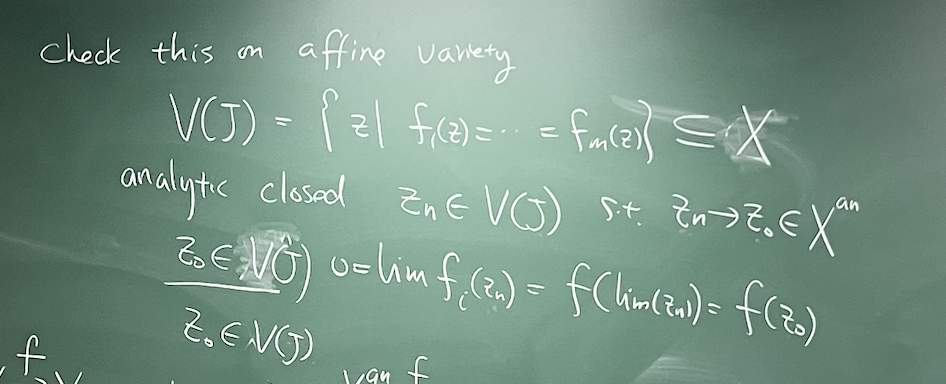 Check this on affine variety
V(J) = { z | f₁(z) = ⋯ = fₘ(z)} ⊆ X
analytic closed zₙ ∈ V(J) s.t. zₙ → z₀ ∈ Xᵃⁿ
z₀ ∈ V(J) 0 = lim fᵢ(zₙ) = f(lim(zₙ)) = f(z₀)
z₀ ∈ V(J)
f
an f